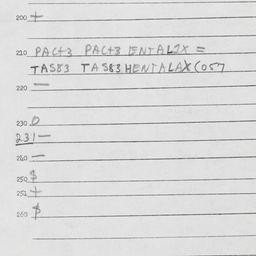 200 +
210 PACt3 PACt3 ENTALJX =
TAS83 TAS83HENTALAX(057
—
220
230 0
231 —
240 —
250 $
252 +
260 $